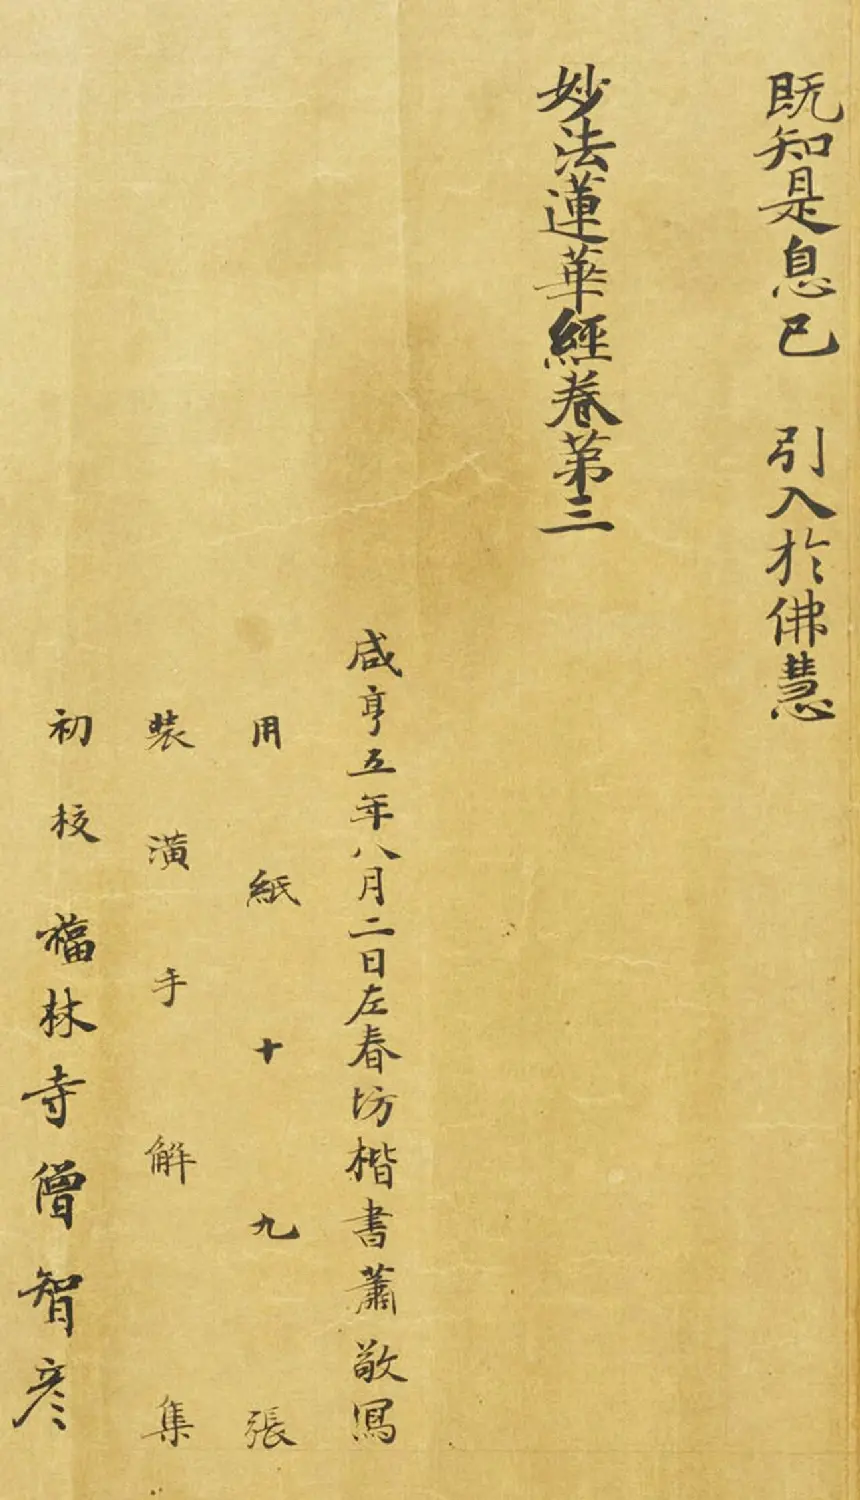 既知是息已 引入於佛慧
妙法蓮華經卷第三
咸亨五年八月二日左春坊楷書蕭敬寫
用紙十九張
裝潢手解集
初校福林寺僧智彦